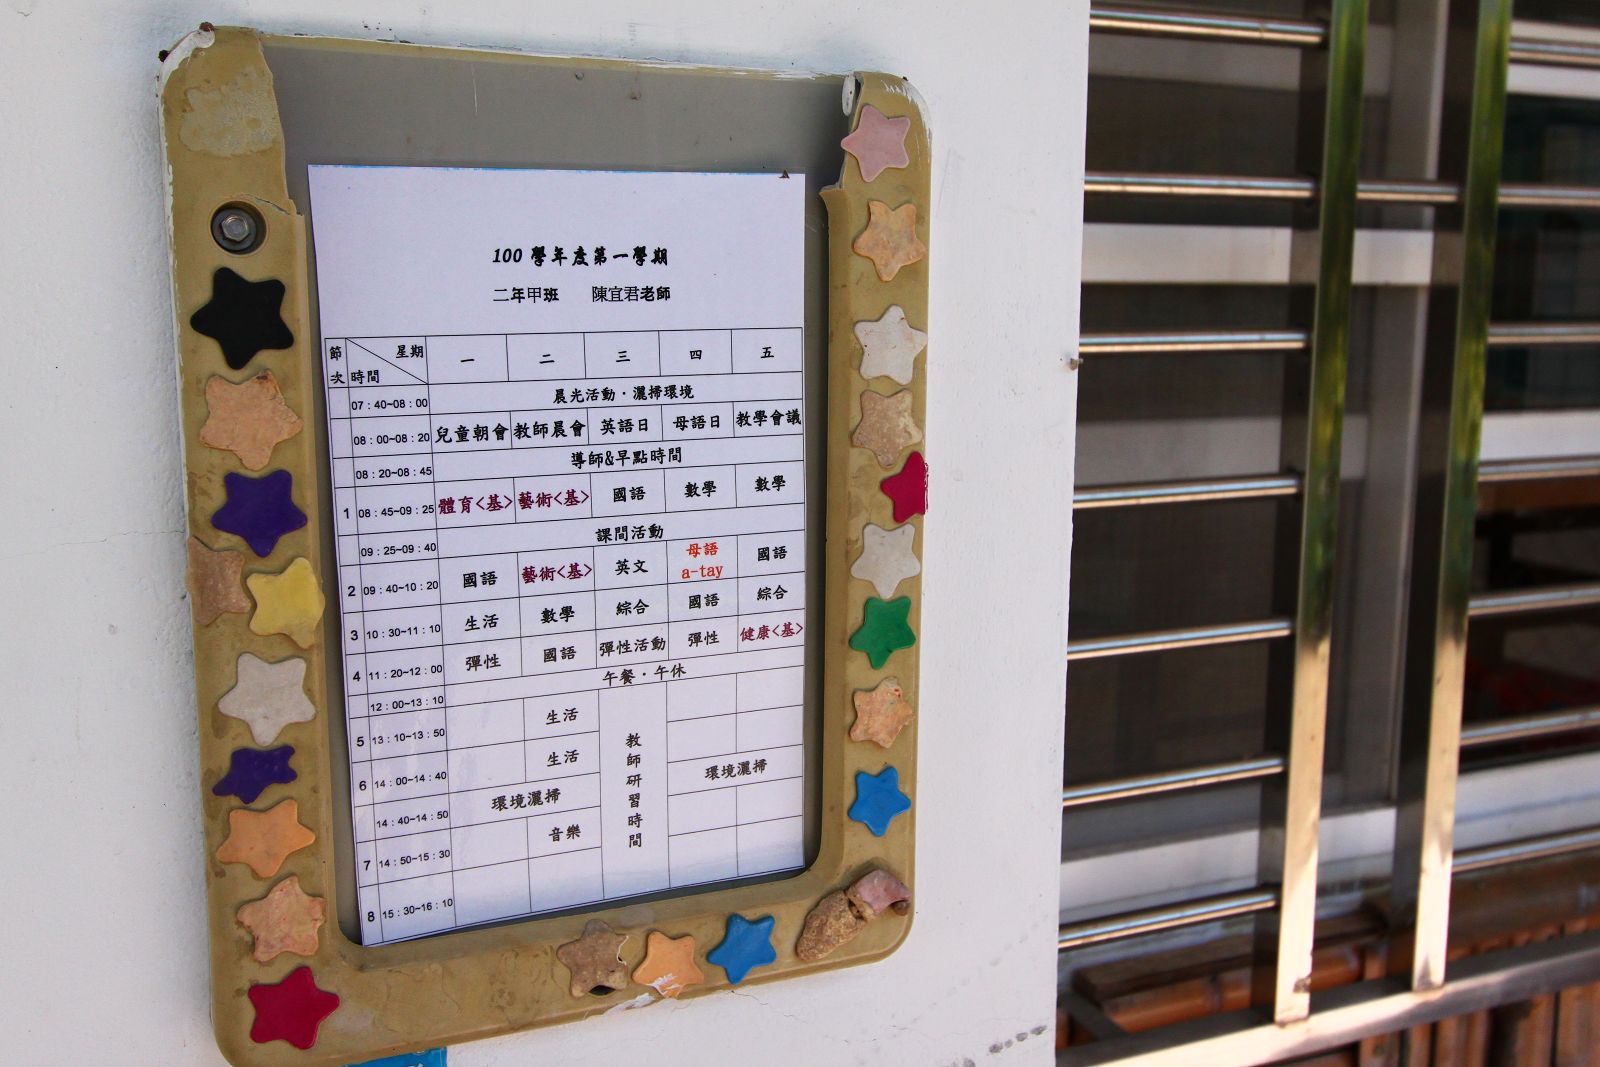 100 學年度第一學期
二年甲班 陳宜君老師
節次 星期 時間 一 二 三 四 五
07：40~08：00 晨光活動・灑掃環境
08：00~08：20 兒童朝會 教師晨會 英語日 母語日 教學會議
08：20~08：45 導師&早點時間
1 08：45~09：25 體育<基> 藝術<基> 國語 數學 數學
09：25~09：40 課間活動
2 09：40~10：20 國語 藝術<基> 英文 母語 a-tay 國語
3 10：30~11：10 生活 數學 綜合 國語 綜合
4 11：20~12：00 彈性 國語 彈性活動 彈性 健康<基>
12：00~13：10 午餐・午休
5 13：10~13：50 生活 教師研習時間
6 14：00~14：40 生活
14：40~14：50 環境灑掃 環境灑掃
7 14：50~15：30 音樂
8 15：30~16：10